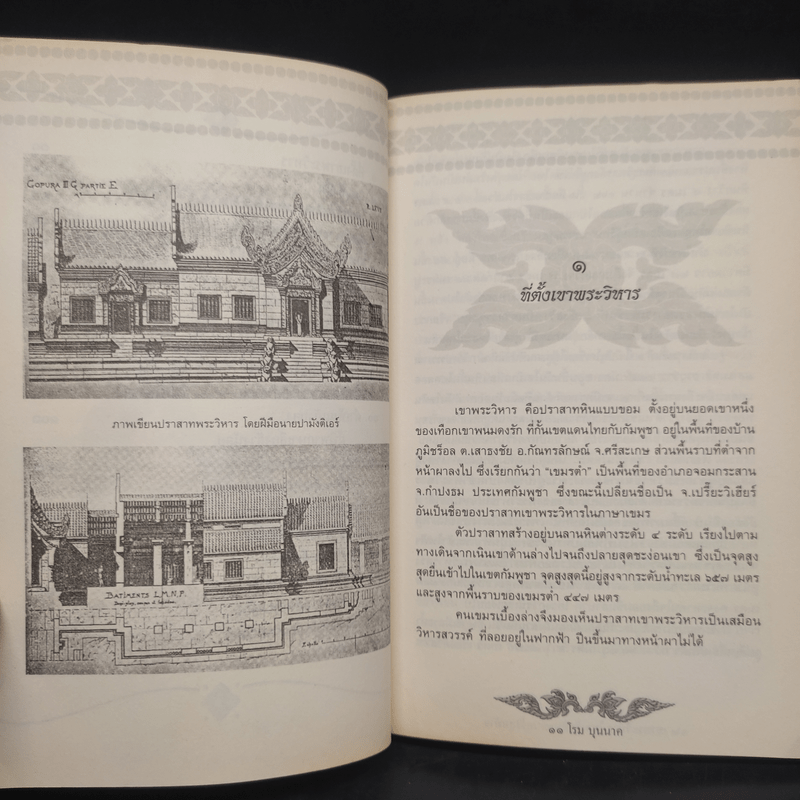 GOPURA III G. PARTIE E
ภาพเขียนปราสาทพระวิหาร โดยฝีมือนายปามังดิเอร์
BATIMENTS L.M.N.P.
๑
ที่ตั้งเขาพระวิหาร
เขาพระวิหาร คือปราสาทหินแบบขอม ตั้งอยู่บนยอดเขาหนึ่ง
ของเทือกเขาพนมดงรัก ที่กั้นเขตแดนไทยกับกัมพูชา อยู่ในพื้นที่ของบ้าน
ภูมิซร็อล ต.เสาธงชัย อ.กัณทรลักษณ์ จ.ศรีสะเกษ ส่วนพื้นราบที่ต่ำจาก
หน้าผาลงไป ซึ่งเรียกกันว่า "เขมรต่ำ" เป็นพื้นที่ของอำเภอจอมกระสาน
จ.กำปงธม ประเทศกัมพูชา ซึ่งขณะนี้เปลี่ยนชื่อเป็น จ.เปรี๊ยะวิเฮียร์
อันเป็นชื่อของปราสาทเขาพระวิหารในภาษาเขมร
ตัวปราสาทสร้างอยู่บนลานหินต่างระดับ ๔ ระดับ เรียงไปตาม
ทางเดินจากเนินเขาด้านล่างไปจนถึงปลายสุดชะง่อนเขา ซึ่งเป็นจุดสูง
สุดยื่นเข้าไปในเขตกัมพูชา จุดสูงสุดนี้อยู่สูงจากระดับน้ำทะเล ๖๕๗ เมตร
และสูงจากพื้นราบของเขมรต่ำ ๔๔๗ เมตร
คนเขมรเบื้องล่างจึงมองเห็นปราสาทเขาพระวิหารเป็นเสมือน
วิหารสวรรค์ ที่ลอยอยู่ในฟากฟ้า ปีนขึ้นมาทางหน้าผาไม่ได้
๑๑ โรม บุนนาค